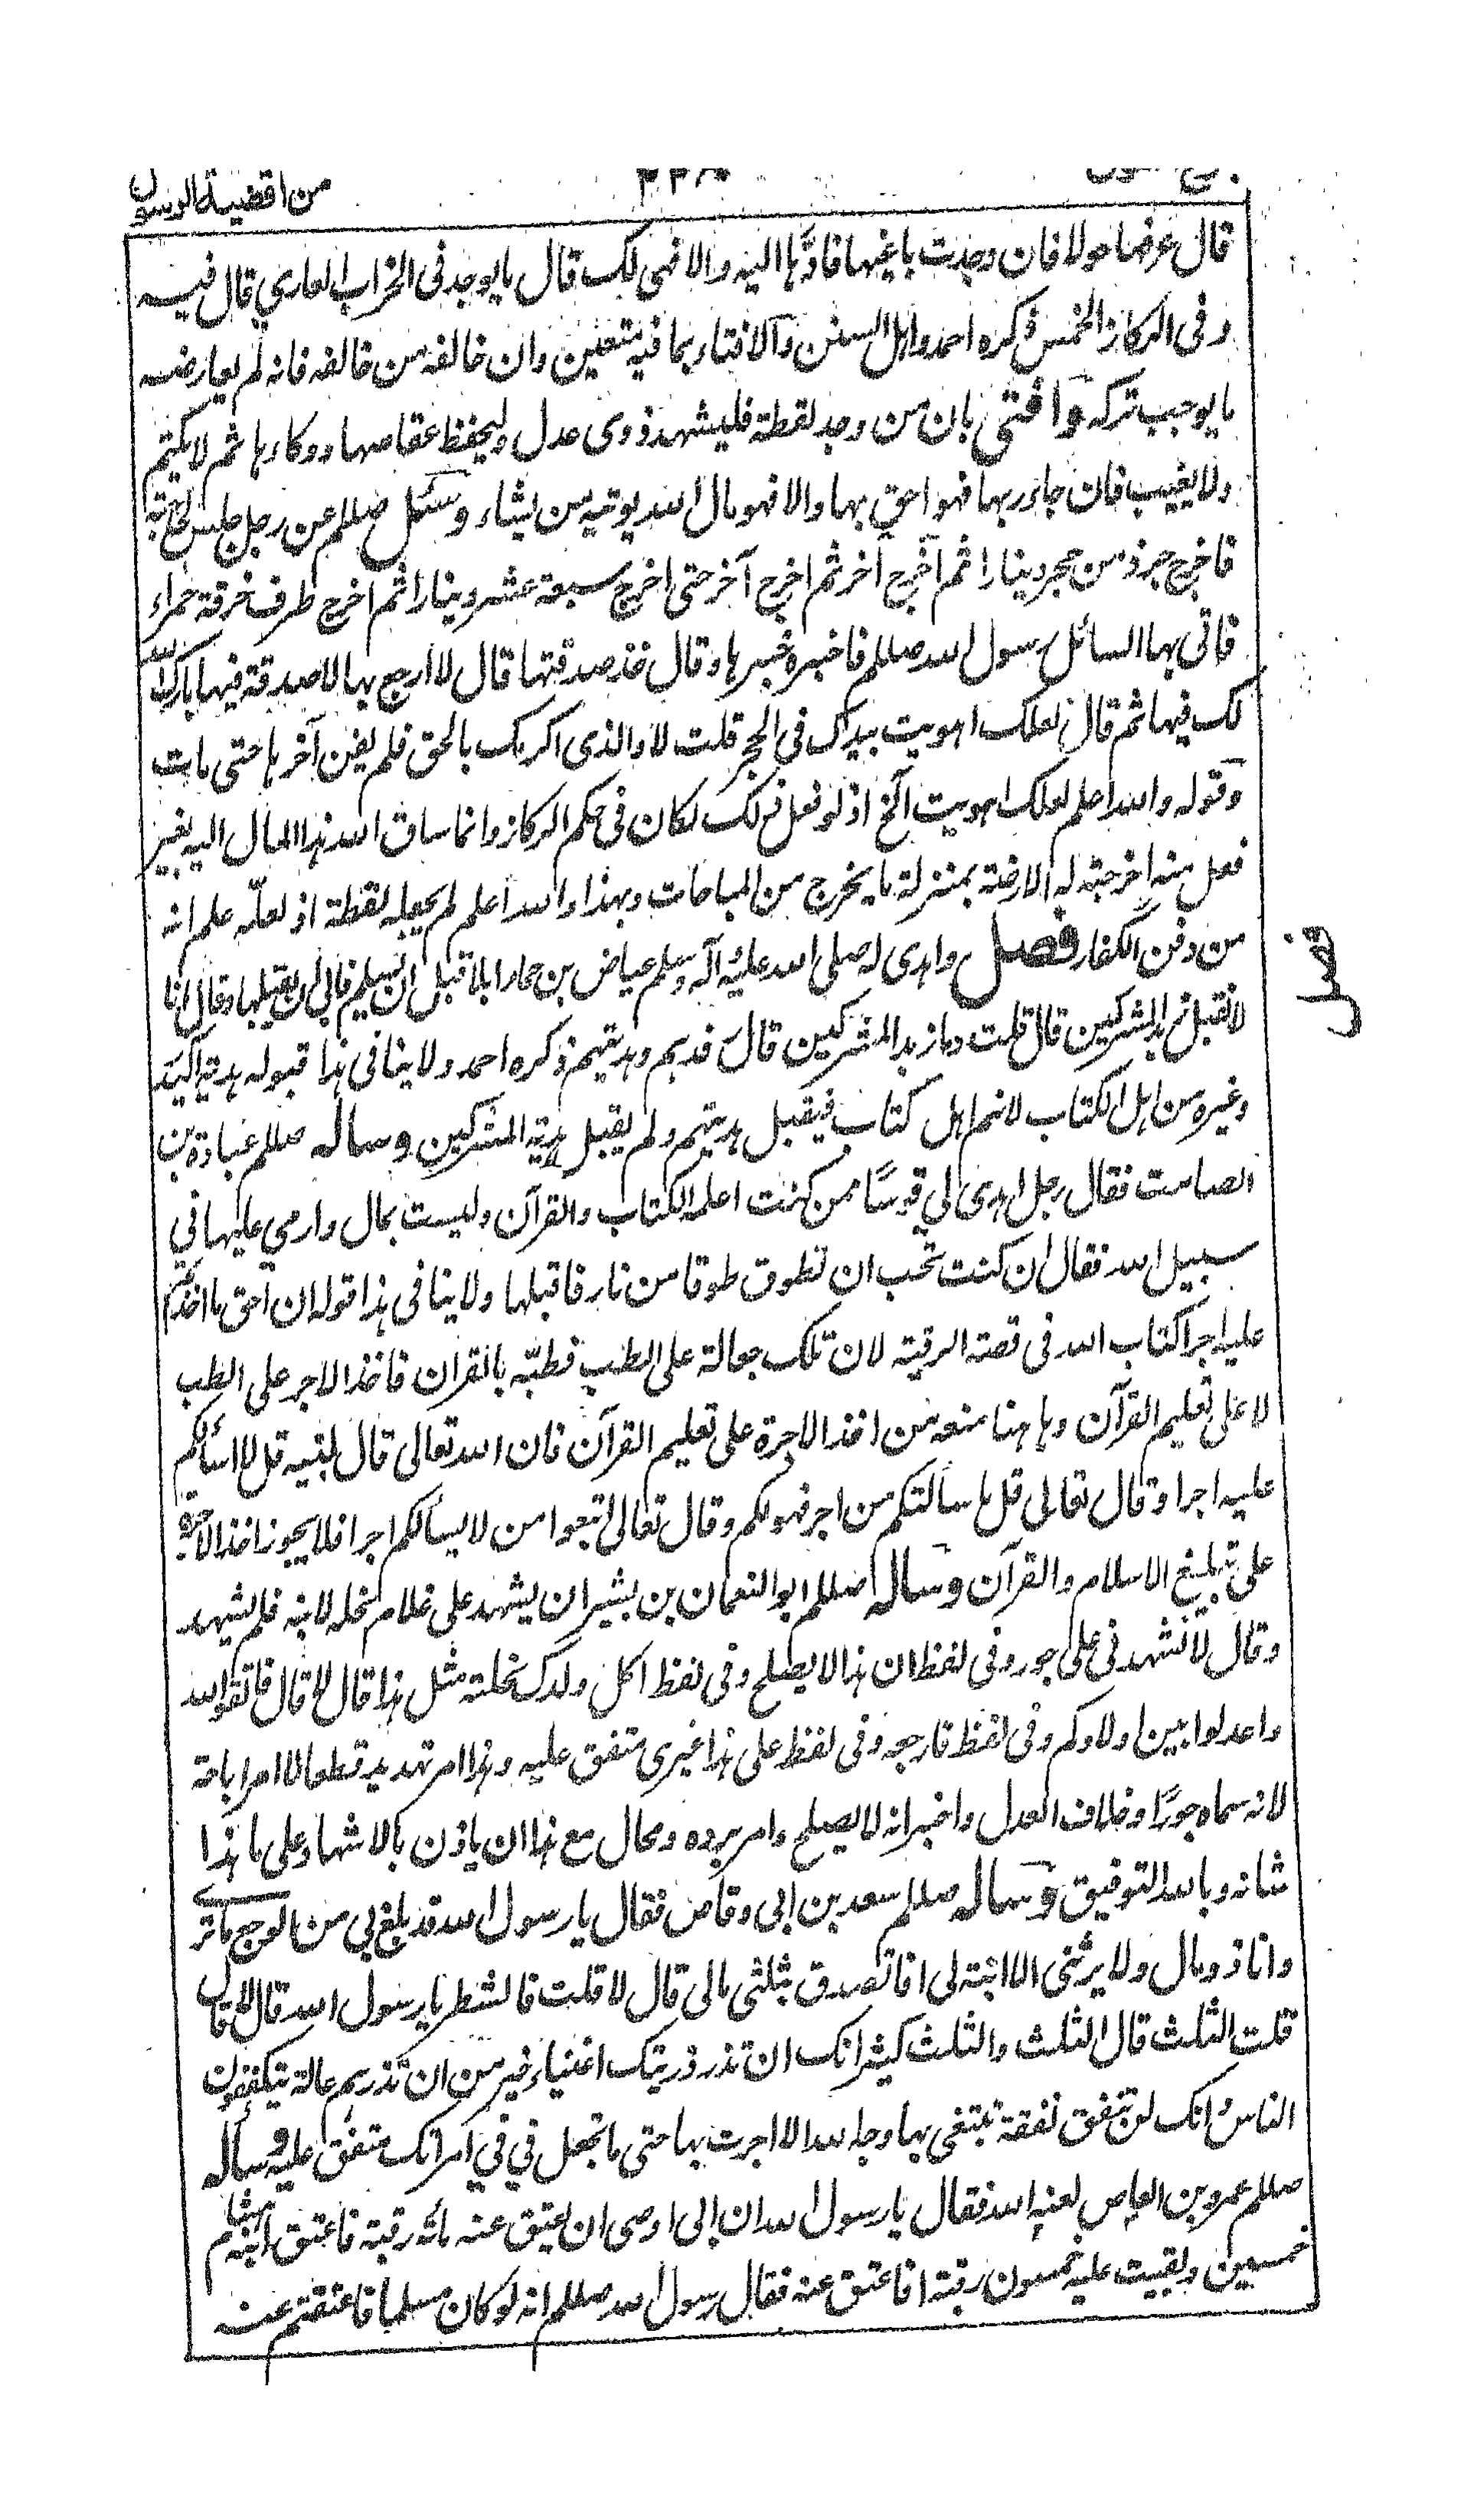 من اقضية الرسول
قال عرفها حولا فان وجدت باغيها فادّها اليه والا فهي لك قال ما يوجد في الخراب العاري قال فيه
وفي الركاز الخمس ذكره احمد واهل السنن والافتاء بما فيه متعين وان خالفه من خالفه فانه لم يعارضه
ما يوجب تركه وافتى بان من وجد لقطة فليشهد ذوى عدل وليحفظ عفاصها ووكاءها ثم لا يكتم
ولا يغيب فان جاء ربها فهو احق بها والا فهو مال الله يوتيه من يشاء وسئل صللم عن رجل جلس لحاجته
فاخرج جرذ من جحر دينارا ثم اخرج آخر ثم اخرج آخر حتى اخرج سبعة عشر دينارا ثم اخرج طرف خرقة حمراء
فاتى بها السائل رسول الله صللم فاخبره خبرها وقال خذ صدقتها قال لا ارجع بها لا صدقة فيها بارك الله
لك فيها ثم قال لعلك اهويت بيدك في الجحر قلت لا والذى اكرمك بالحق فلم يفن آخرها حتى مات
وقوله والله اعلم لعلك اهويت الخ اذ لو فعل ذلك لكان في حكم الركاز وانما ساق الله هذا المال اليه بغير
فعل منه اخرجته له الارض بمنزلة ما يخرج من المباحات وبهذا والله اعلم لم يجعله لقطة اذ لعلّه علم انه
من دفن الكفار فصل واهدى له صلى الله عليه وآله وسلم عياض بن حمار ابلا قبل ان يسلم فابى ان يقبلها وقال انا
لا نقبل زبد المشركين قال قلت وما زبد المشركين قال رفدهم وهديتهم ذكره احمد ولا ينافى هذا قبوله هدية اكيدر
وغيره من اهل الكتاب لانهم اهل كتاب فيقبل هديتهم ولم يقبل هدية المشركين وساله صللم عبادة بن
الصامت فقال رجل اهدى لي قوسًا ممن كنت اعلمه الكتاب والقرآن وليست بمال وارمى عليها في
سبيل الله فقال ان كنت تحب ان تطوق طوقا من نار فاقبلها ولا ينافى هذا قوله ان احق ما اخذتم
عليه اجرا كتاب الله في قصة الرقية لان تلك جعالة على الطب فطبّه بالقرآن فاخذ الاجر على الطب
لا على تعليم القرآن وها هنا منعه من اخذ الاجرة على تعليم القرآن فان الله تعالى قال لنبيه قل لا اسألكم
عليه اجرا وقال تعالى قل ما سألتكم من اجر فهو لكم وقال تعالى اتبعوا من لا يسالكم اجرا فلا يجوز اخذ الاجرة
على تبليغ الاسلام والقرآن وساله صللم ابو النعمان بن بشير ان يشهد على غلام نحله لابنه فلم يشهد
وقال لا تشهدنى على جور وفي لفظ ان هذا لا يصلح وفي لفظ اكل ولدك نحلته مثل هذا قال لا قال فاتقوا الله
واعدلوا بين اولادكم وفي لفظ فارجعه وفي لفظ على هذا غيرى متفق عليه وهذا امر تهديد قطعا لا امر اباحة
لانه سماه جورًا وخلاف العدل واخبر انه لا يصلح وامر برده ومحال مع هذا ان ياذن بالاشهاد على ما هذا
شانه وبالله التوفيق وساله صللم سعد بن ابى وقاص فقال يا رسول الله قد بلغ بى من الوجع ما ترى
وانا ذو مال ولا يرثنى الا ابنة لى افاتصدق بثلثى مالى قال لا قلت فالشطر يا رسول الله قال لا قال
قلت الثلث قال الثلث والثلث كثير انك ان تذر ذريتك اغنياء خير من ان تذرهم عالة يتكففون
الناس وانك لن تنفق نفقة تبتغى بها وجه الله الا اجرت بها حتى ما تجعل في في امراتك متفق عليه وسأله
صللم عمرو بن العاص لعنه الله فقال يا رسول الله ان ابى اوصى ان يعتق عنه مائة رقبة فاعتق ابنه هشام
خمسين وبقيت عليه خمسون رقبة افاعتق عنه فقال رسول الله صللم انه لو كان مسلما فاعتقتم عنه
فصل